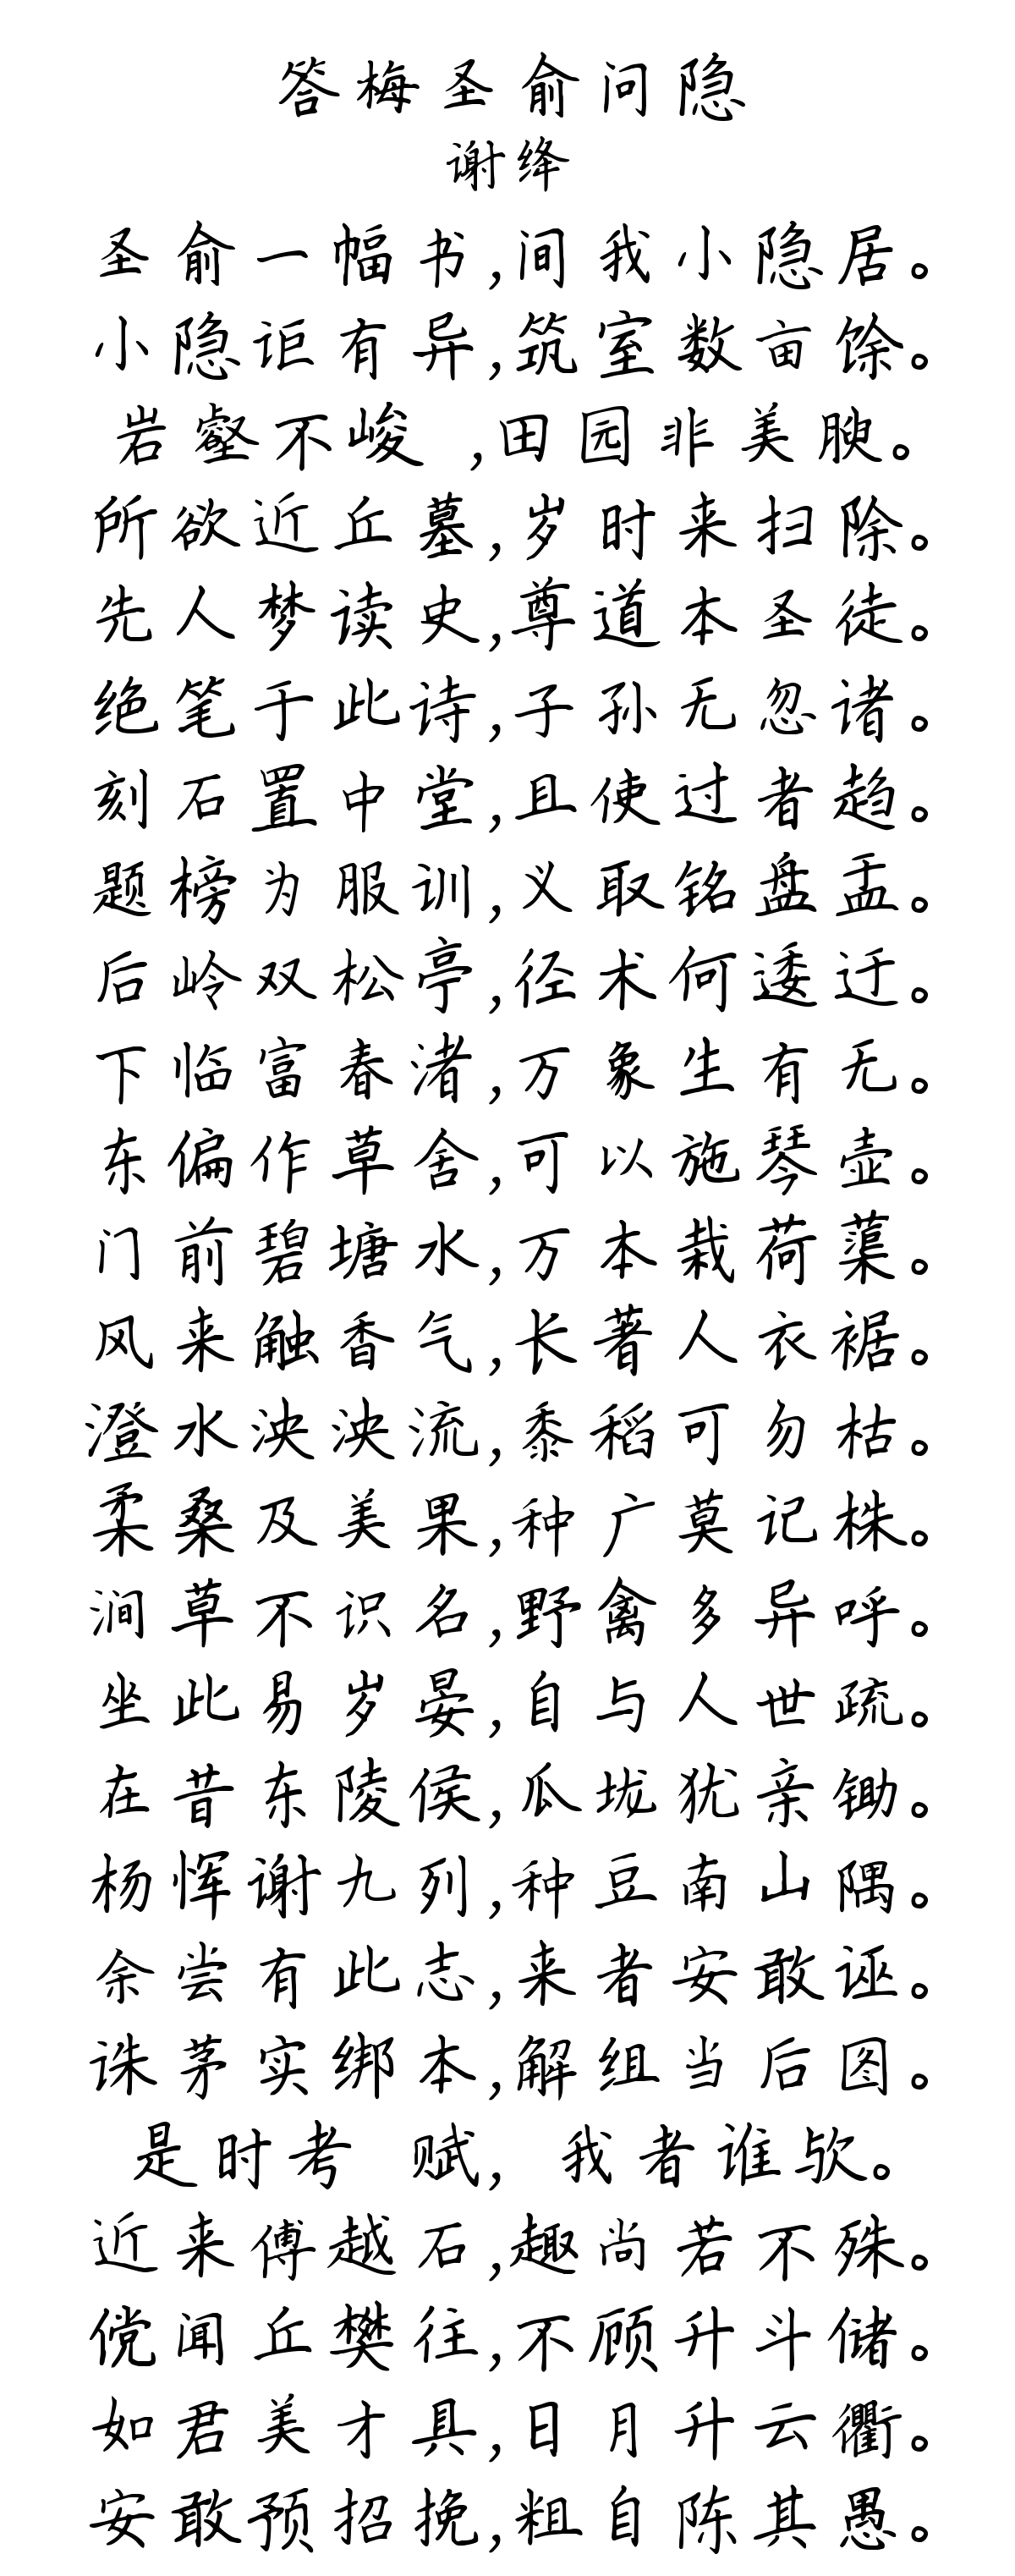 答梅圣俞问隐
谢绛
圣俞一幅书,间我小隐居。
小隐讵有异,筑室数亩馀。
岩壑不峻 ,田园非美腴。
所欲近丘墓,岁时来扫除。
先人梦读史,尊道本圣徒。
绝笔于此诗,子孙无忽诸。
刻石置中堂,且使过者趋。
题榜为服训,义取铭盘盂。
后岭双松亭,径术何逶迂。
下临富春渚,万象生有无。
东偏作草舍,可以施琴壶。
门前碧塘水,万本栽荷蕖。
风来触香气,长著人衣裾。
澄水泱泱流,黍稻可勿枯。
柔桑及美果,种广莫记株。
涧草不识名,野禽多异呼。
坐此易岁晏,自与人世疏。
在昔东陵侯,瓜垅犹亲锄。
杨恽谢九列,种豆南山隅。
余尝有此志,来者安敢诬。
诛茅实绑本,解组当后图。
是时考 赋, 我者谁欤。
近来傅越石,趣尚若不殊。
傥闻丘樊往,不顾升斗储。
如君美才具,日月升云衢。
安敢预招挽,粗自陈其愚。